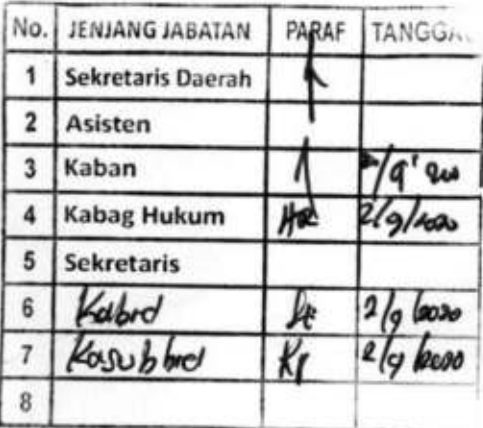 No. JENJANG JABATAN PARAF TANGGA
1 Sekretaris Daerah
2 Asisten
3 Kaban
4 Kabag Hukum 2/9/2020
5 Sekretaris
6 Kabid 2/9/2020
7 Kasubbid 2/9/2020
8